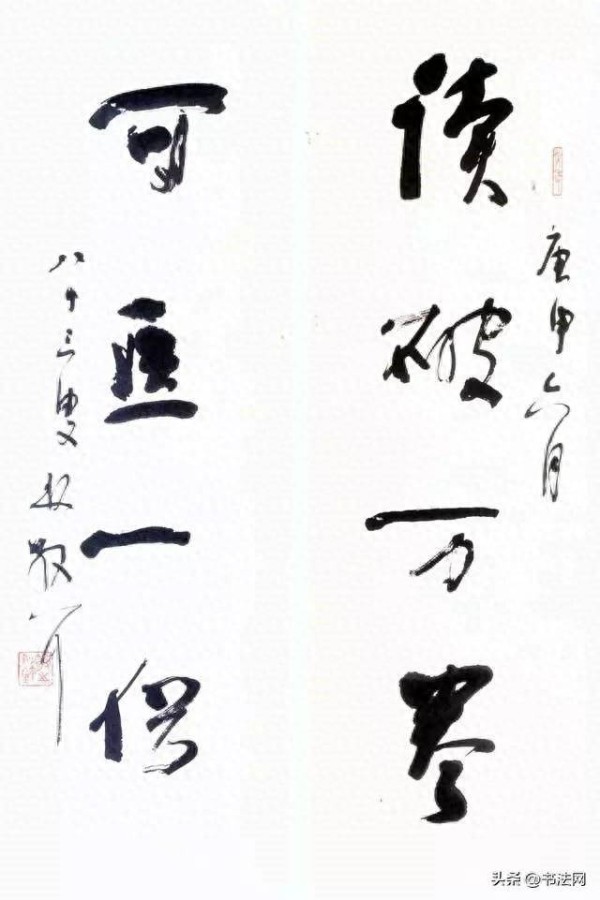 庚申六月
读破万卷
可医一俗
八十三叟林散耳
头条 @书法网